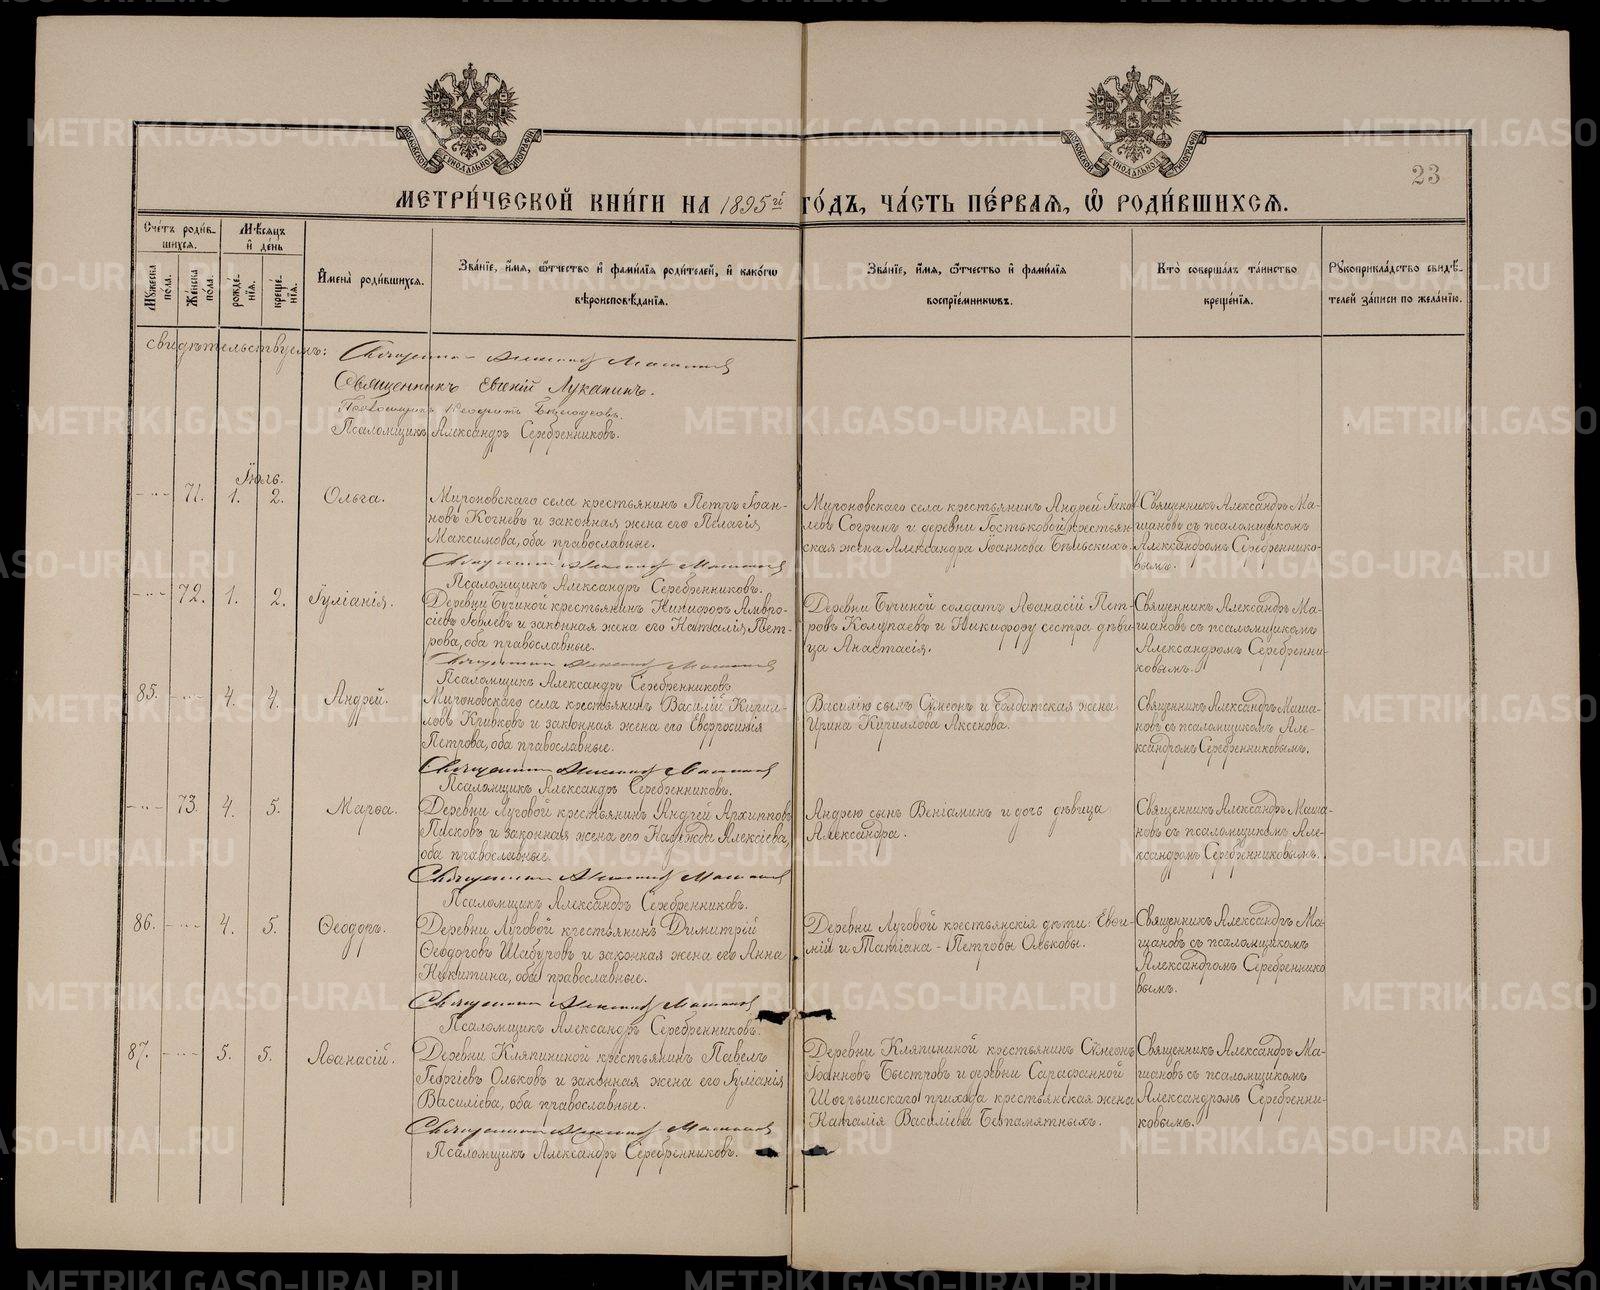 МЕТРИ́ЧЕСКОЙ КНИ́ГИ НА 1895й ГО́ДЪ, ЧА́СТЬ ПЕ́РВАЯ, Ѡ РОДИ́ВШИХСЯ.
23
Сче́тъ роди́в-
шихся.
Му́жеска по́ла.
Же́нска по́ла.
Мѣ́сяцъ
и де́нь
рожде́-
нія.
креще́-
нія.
Имена̀ роди́вшихся.
Зва́ніе, и́мя, ѻ́тчество и фами́лія роди́телей, и како́гѡ
вѣроисповѣ́данія.
Зва́ніе, и́мя, ѻ́тчество и фами́лія
воспріе́мниковъ.
Кто̀ соверша́лъ та́инство
креще́нія.
Рукоприкла́дство свидѣ́-
телей за́писи по жела́нію.
свидѣтельствуемъ:
Священникъ Евгеній Луканинъ.
Псаломщикъ Александръ Серебренниковъ.
Іюль.
71. 1. 2. Ольга.
Мироновскаго села крестьянинъ Петръ Іоан-
новъ Кочневъ и законная жена его Пелагія
Максимова, оба православные.
Псаломщикъ Александръ Серебренниковъ.
Мироновскаго села крестьянинъ Андрей Іаков-
левъ Согринъ и деревни Гостьковой крестьян-
ская жена Александра Іоаннова Бѣльскихъ.
Священникъ Александръ Ма-
шановъ съ псаломщикомъ
Александромъ Серебреннико-
вымъ.
72. 1. 2. Іуліанія.
Деревни Бучиной крестьянинъ Никифоръ Амвро-
сіевъ и законная жена его Наталія Пет-
рова, оба православные.
Псаломщикъ Александръ Серебренниковъ
Деревни Бучиной солдатъ Аѳанасій Пет-
ровъ Колупаевъ и Никифору сестра дѣви-
ца Анастасія.
Священникъ Александръ Ма-
шановъ съ псаломщикомъ
Александромъ Серебренни-
ковымъ.
85. 4. 4. Андрей.
Мироновскаго села крестьянинъ Василій Кирил-
ловъ Кривковъ и законная жена его Евфросинія
Петрова, оба православные.
Псаломщикъ Александръ Серебренниковъ.
Василію сынъ Сѵмеонъ и солдатская жена
Ирина Кириллова Аксенова.
Священникъ Александръ Маша-
новъ съ псаломщикомъ Але-
ксандромъ Серебренниковымъ.
73. 4. 5. Марѳа.
Деревни Луговой крестьянинъ Андрей Архипповъ
и законная жена его Надежда Алексіева,
оба православные.
Псаломщикъ Александръ Серебренниковъ.
Андрею сынъ Веніаминъ и дочь дѣвица
Александра.
Священникъ Александръ Маша-
новъ съ псаломщикомъ Але-
ксандромъ Серебренниковымъ.
86. 4. 5. Ѳеодоръ.
Деревни Луговой крестьянинъ Димитрій
Ѳеодоровъ Шабуровъ и законная жена его Анна
Никитина, оба православные.
Псаломщикъ Александръ Серебренниковъ.
Деревни Луговой крестьянскія дѣти: Евѳи-
мій и Татіана - Петровы Ольковы.
Священникъ Александръ Ма-
шановъ съ псаломщикомъ
Александромъ Серебреннико-
вымъ.
87. 5. 5. Аѳанасій.
Деревни Кляпининой крестьянинъ Павелъ
Георгіевъ Ольковъ и законная жена его Іуліанія
Василіева, оба православные.
Псаломщикъ Александръ Серебренниковъ.
Деревни Кляпининой крестьянинъ Сѵмеонъ
Іоанновъ Быстровъ и деревни Сарафанной
Шогрышскаго прихода крестьянская жена
Наталія Василіева Безпамятныхъ.
Священникъ Александръ Ма-
шановъ съ псаломщикомъ
Александромъ Серебренни-
ковымъ.
METRIKI.GASO-URAL.RU